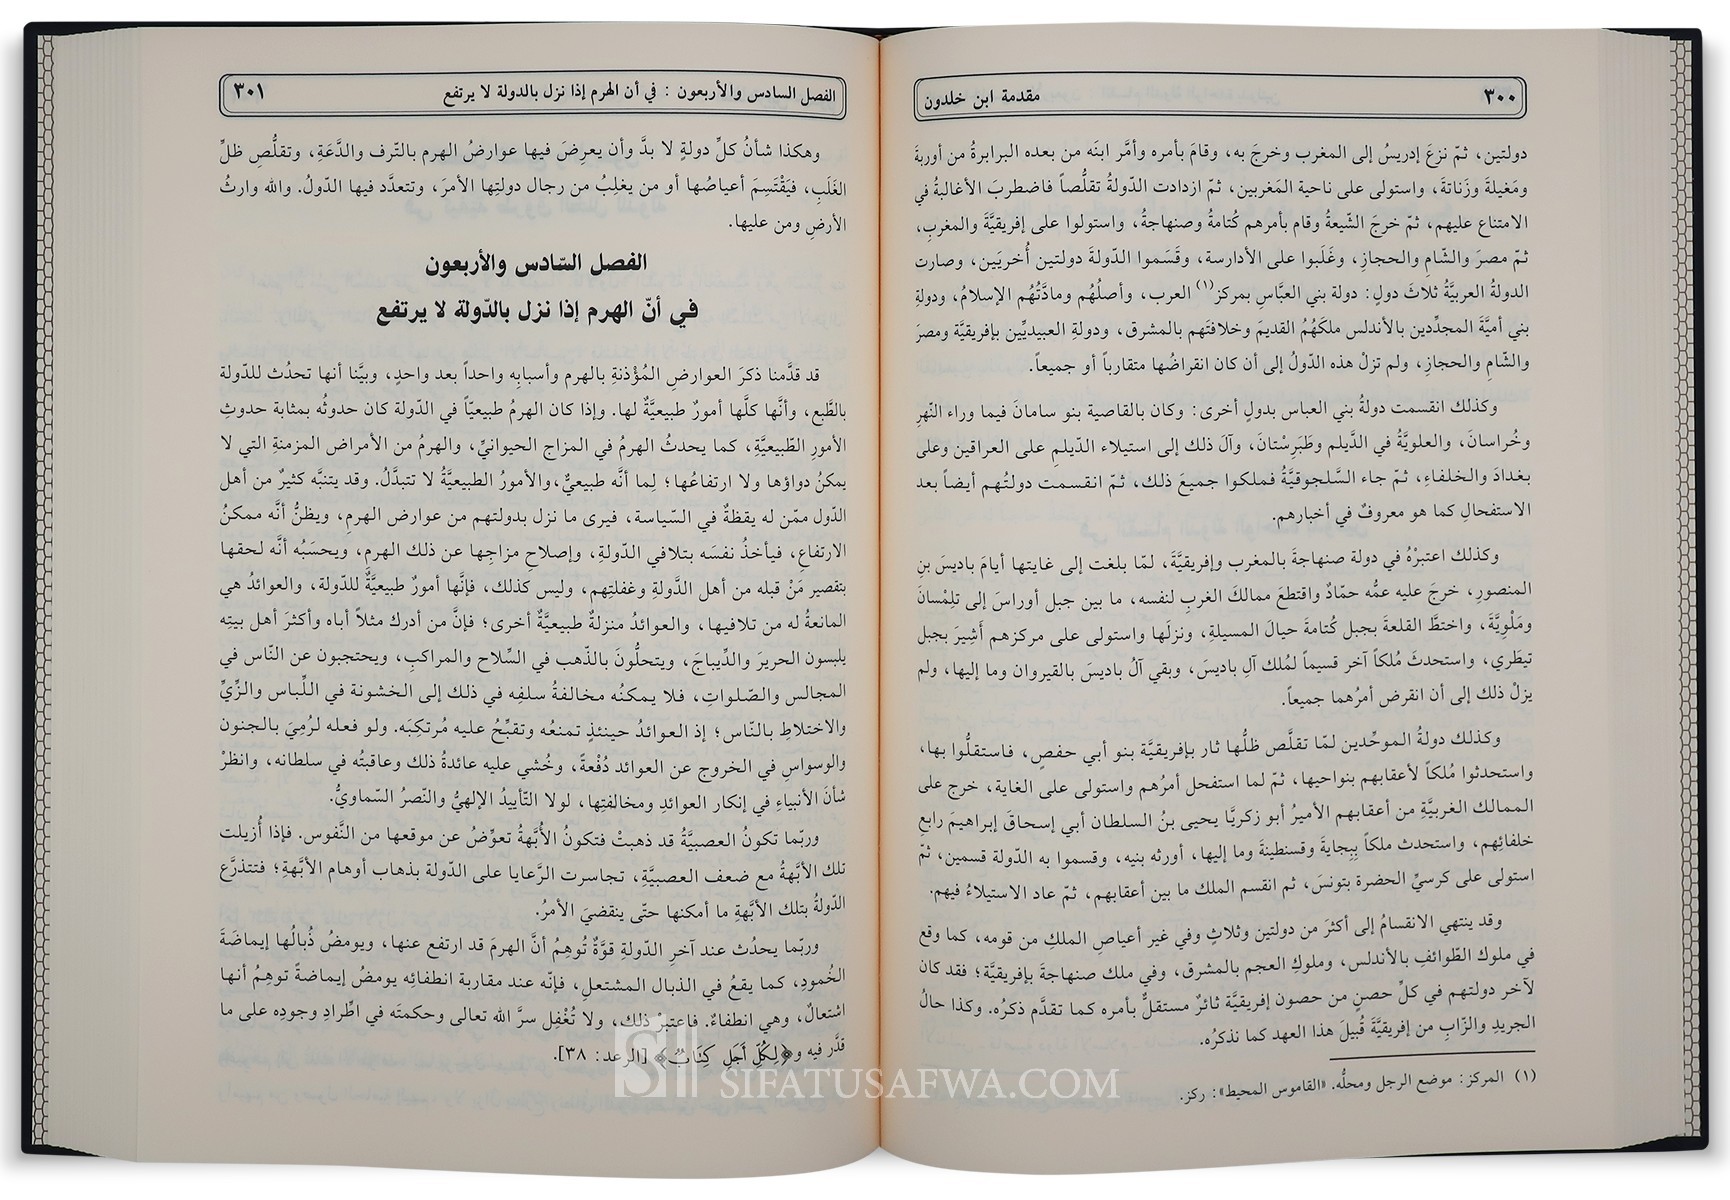 ٣٠٠ مقدمة ابن خلدون
دولتين، ثمّ نزعَ إدريسُ إلى المغرب وخرجَ به، وقامَ بأمره وأمَّر ابنَه من بعده البرابرةُ من أوربةَ
ومَغيلةَ وزَناتةَ، واستولى على ناحية المَغربين، ثمّ ازدادت الدّولةُ تقلُّصاً فاضطربَ الأغالبةُ في
الامتناع عليهم، ثمّ خرجَ الشّيعةُ وقام بأمرهم كُتامةُ وصنهاجةُ، واستولوا على إفريقيَّةَ والمغربِ،
ثمّ مصرَ والشّامِ والحجازِ، وغَلَبوا على الأدارسة، وقَسَموا الدّولةَ دولتين أُخريَين، وصارت
الدولةُ العربيَّةُ ثلاثَ دولٍ: دولة بني العبَّاس بمركز(١) العرب، وأصلُهُم ومادَّتُهُم الإسلامُ، ودولةِ
بني أميَّةَ المجدِّدين بالأندلس ملكَهُمُ القديمَ وخلافتَهم بالمشرق، ودولةِ العبيديِّين بإفريقيَّة ومصرَ
والشّامِ والحجازِ، ولم تزلْ هذه الدّولُ إلى أن كان انقراضُها متقارباً أو جميعاً.
وكذلك انقسمت دولةُ بني العباس بدولٍ أخرى: وكان بالقاصية بنو سامانَ فيما وراء النّهرِ
وخُراسانَ، والعلويَّةُ في الدَّيلم وطَبَرِسْتانَ، وآلَ ذلك إلى استيلاء الدّيلمِ على العراقين وعلى
بغدادَ والخلفاءِ، ثمّ جاء السَّلجوقيَّةُ فملكوا جميعَ ذلك، ثمّ انقسمت دولتُهم أيضاً بعد
الاستفحالِ كما هو معروفٌ في أخبارهم.
وكذلك اعتبرْهُ في دولة صنهاجةَ بالمغرب وإفريقيَّةَ، لمّا بلغت إلى غايتها أيامَ باديسَ بنِ
المنصورِ، خرجَ عليه عمُّه حمّادٌ واقتطعَ ممالكَ الغربِ لنفسه، ما بين جبل أوراسَ إلى تِلِمْسانَ
ومَلْوِيَّةَ، واختطَّ القلعةَ بجبل كُتامةَ حيالَ المسيلةِ، ونزلَها واستولى على مركزهم أَشِيرَ بجبل
تيطَري، واستحدثَ مُلكاً آخر قسيماً لمُلك آلِ باديسَ، وبقي آلُ باديسَ بالقيروان وما إليها، ولم
يزلْ ذلك إلى أن انقرض أمرُهما جميعاً.
وكذلك دولةُ الموحِّدين لمّا تقلَّص ظلُّها ثار بإفريقيَّة بنو أبي حفصٍ، فاستقلُّوا بها،
واستحدثوا مُلكاً لأعقابهم بنواحيها، ثمّ لما استفحل أمرُهم واستولى على الغاية، خرج على
الممالك الغربيَّةِ من أعقابهم الأميرُ أبو زكريَّا يحيى بنُ السلطان أبي إسحاقَ إبراهيمَ رابعِ
خلفائِهم، واستحدث ملكاً بِبِجايةَ وقسنطينةَ وما إليها، أورثه بنيه، وقسموا به الدولة قسمين، ثمّ
استولى على كرسيِّ الحضرة بتونسَ، ثم انقسم الملك ما بين أعقابهم، ثمّ عاد الاستيلاءُ فيهم.
وقد ينتهي الانقسامُ إلى أكثرَ من دولتين وثلاثٍ وفي غير أعياصِ الملكِ من قومه، كما وقع
في ملوك الطّوائفِ بالأندلس، وملوكِ العجم بالمشرق، وفي ملك صنهاجةَ بإفريقيَّة؛ فقد كان
لآخر دولتهم في كلِّ حصنٍ من حصون إفريقيَّة ثائرٌ مستقلٌّ بأمره كما تقدَّم ذكرُه. وكذا حالُ
الجريدِ والزّابِ من إفريقيَّةَ قُبيلَ هذا العهد كما نذكرُه.
(١) المركز: موضع الرجل ومحلُّه. «القاموس المحيط»: ركز.
الفصل السادس والأربعون : في أن الهرم إذا نزل بالدولة لا يرتفع ٣٠١
وهكذا شأنُ كلِّ دولةٍ لا بدَّ وأن يعرِضَ فيها عوارضُ الهرم بالتّرف والدَّعَةِ، وتقلُّصِ ظلِّ
الغَلَبِ، فيَقْتَسِمَ أعياصُها أو من يغلِبُ من رجال دولتِها الأمرَ، وتتعدَّد فيها الدّولُ. والله وارثُ
الأرضِ ومن عليها.
الفصل السّادس والأربعون
في أنّ الهرم إذا نزل بالدّولة لا يرتفع
قد قدَّمنا ذكرَ العوارضِ المُؤْذنةِ بالهرم وأسبابِه واحداً بعد واحدٍ، وبيَّنا أنها تحدُث للدّولة
بالطَّبع، وأنَّها كلَّها أمورٌ طبيعيَّةٌ لها. وإذا كان الهرمُ طبيعيّاً في الدّولة كان حدوثُه بمثابة حدوثِ
الأمورِ الطّبيعيَّةِ، كما يحدثُ الهرمُ في المزاج الحيوانيِّ، والهرمُ من الأمراض المزمنةِ التي لا
يمكنُ دواؤها ولا ارتفاعُها؛ لِما أنَّه طبيعيٌّ،والأمورُ الطبيعيَّةُ لا تتبدَّلُ. وقد يتنبَّه كثيرٌ من أهل
الدّول ممّن له يقظةٌ في السّياسة، فيرى ما نزل بدولتهم من عوارض الهرمِ، ويظنُّ أنَّه ممكنُ
الارتفاعِ، فيأخذُ نفسَه بتلافي الدّولةِ، وإصلاحِ مزاجِها عن ذلك الهرمِ، ويحسَبُه أنَّه لحقها
بتقصير مَنْ قبله من أهل الدَّولةِ وغفلتِهم، وليس كذلك، فإنَّها أمورٌ طبيعيَّةٌ للدّولة، والعوائدُ هي
المانعةُ له من تلافيها، والعوائدُ منزلةٌ طبيعيَّةٌ أخرى؛ فإنَّ من أدرك مثلاً أباه وأكثرَ أهل بيتِه
يلبسون الحريرَ والدِّيباجَ، ويتحلُّونَ بالذّهب في السِّلاح والمراكبِ، ويحتجبون عن النّاس في
المجالس والصّلواتِ، فلا يمكنُه مخالفةُ سلفِه في ذلك إلى الخشونة في اللِّباس والزِّيِّ
والاختلاطِ بالنّاس؛ إذ العوائدُ حينئذٍ تمنعُه وتقبِّحُ عليه مُرتكِبَه. ولو فعله لرُمِيَ بالجنون
والوسواسِ في الخروج عن العوائد دُفْعةً، وخُشي عليه عائدةُ ذلك وعاقبتُه في سلطانه، وانظرْ
شأنَ الأنبياءِ في إنكار العوائدِ ومخالفتِها، لولا التّأييدُ الإلهيُّ والنّصرُ السّماويُّ.
وربّما تكونُ العصبيَّةُ قد ذهبتْ فتكونُ الأُبَّهةُ تعوِّضُ عن موقعها من النَّفوس. فإذا أُزيلت
تلك الأبَّهةُ مع ضعف العصبيَّةِ، تجاسرت الرَّعايا على الدّولة بذهاب أوهام الأبَّهةِ؛ فتتذرَّع
الدّولةُ بتلك الأبَّهةِ ما أمكنها حتّى ينقضيَ الأمرُ.
وربّما يحدُث عند آخرِ الدّولةِ قوَّةٌ تُوهِمُ أنَّ الهرمَ قد ارتفع عنها، ويومضُ ذُبالُها إيماضَةَ
الخُمودِ، كما يقعُ في الذبال المشتعلِ، فإنّه عند مقاربة انطفائِه يومضُ إيماضةً توهِمُ أنها
اشتعالٌ، وهي انطفاءٌ. فاعتبرْ ذلك، ولا تُغْفِل سرَّ الله تعالى وحكمتَه في اطِّرادِ وجودِه على ما
قدَّر فيه و﴿لِكُلِّ أَجَلٍ كِتَابٌ﴾ [الرعد: ٣٨].
SIFATUSAFWA.COM